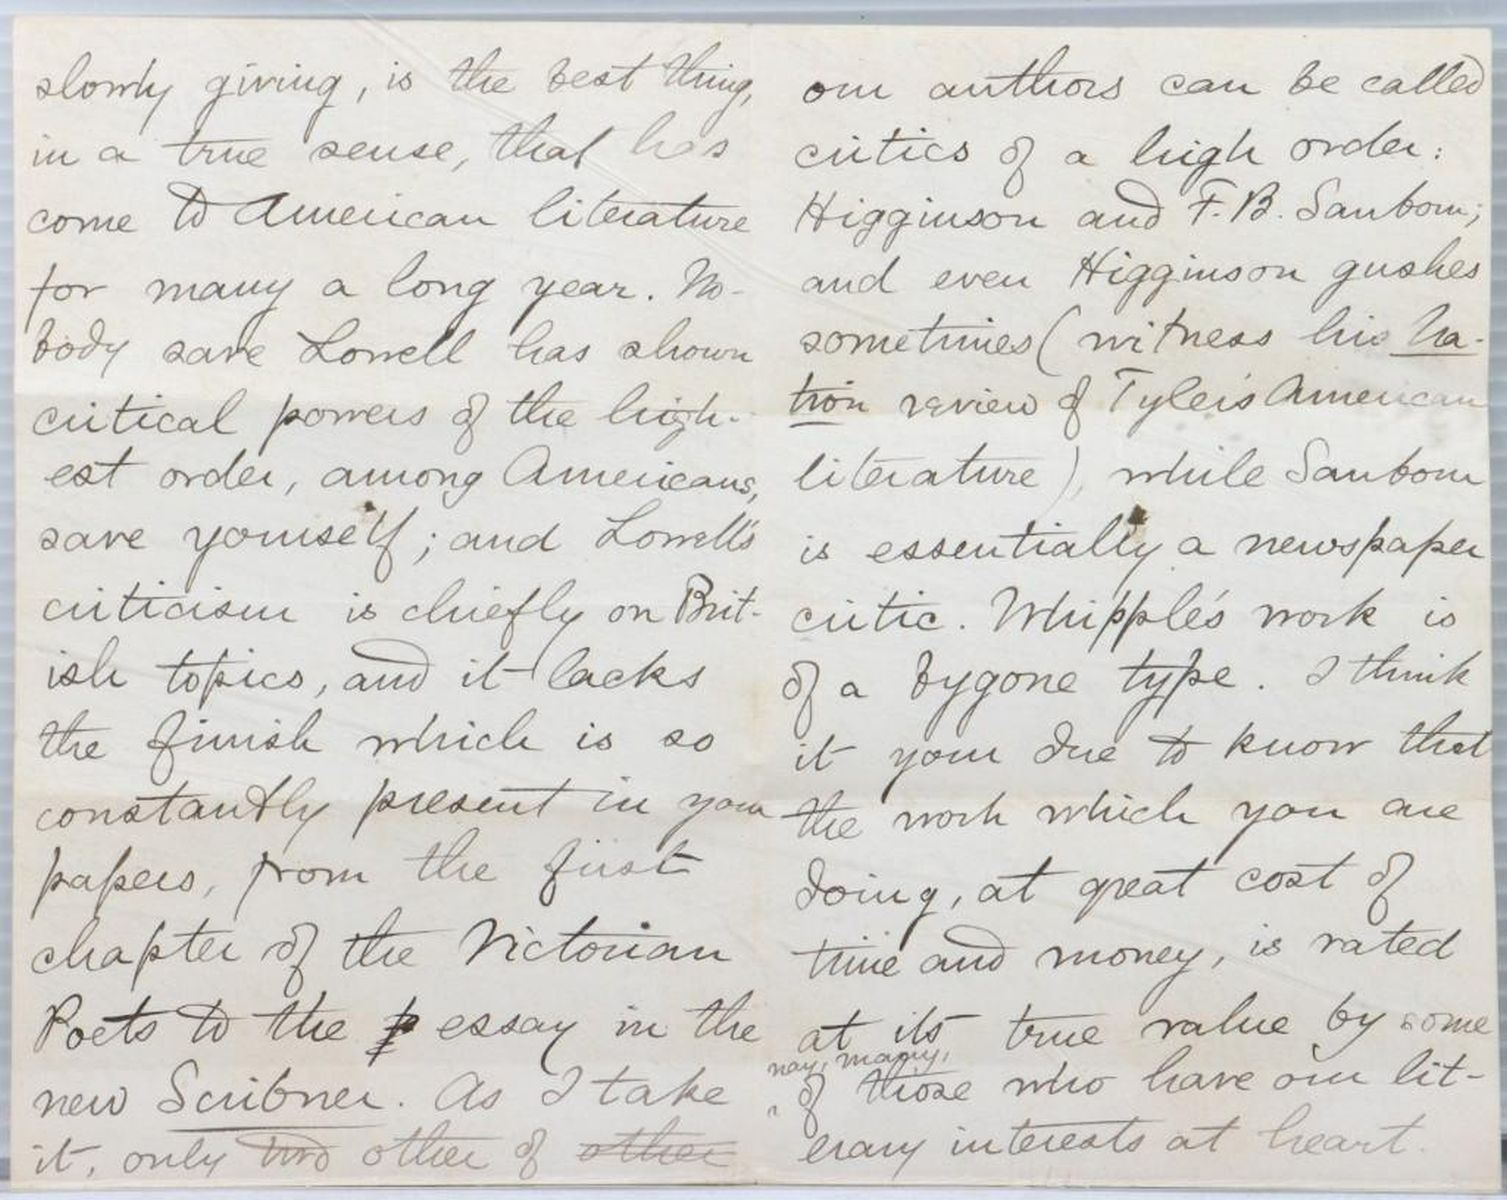 slowly giving, is the best thing,
in a true sense, that has
come to American literature
for many a long year. No-
body save Lowell has shown
critical powers of the high-
est order, among Americans,
save yourself; and Lowell's
criticism is chiefly on Brit-
ish topics, and it lacks
the finish which is so
constantly present in your
papers, from the first
chapter of the Victorian
Poets to the p essay in the
new Scribner. As I take
it, only two other of other
our authors can be called
critics of a high order:
Higginson and F. B. Sanborn;
and even Higginson gushes
sometimes (witness his Na-
tion review of Tyler's American
literature), while Sanborn
is essentially a newspaper
critic. Whipple's work is
of a bygone type. I think
it your due to know that
the work which you are
doing, at great cost of
time and money, is rated
at its true value by some
nay, many,
of those who have our lit-
erary interests at heart.